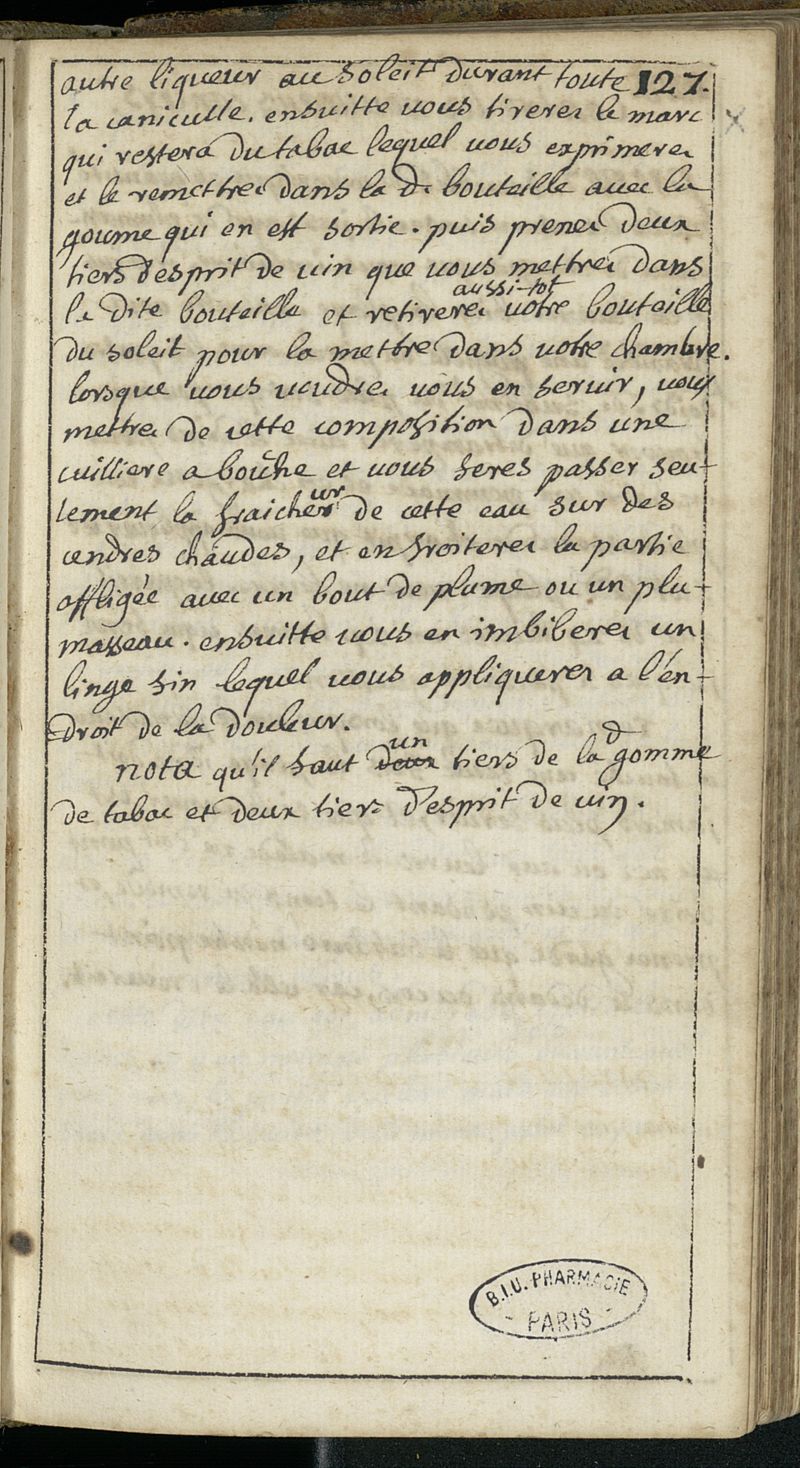 autre liqueur au soleil durant toute 127.
la caniculle. ensuitte vous tirerez le marc
qui restera du tabac lequel vous exprimerez
et le remettrez dans la de bouteille avec la
goume qui en est sortie. puis prenez deux
tiers d'esprit de vin que vous mettrez dans
la dite bouteille et retirerez aussi-tot votre bouteille
du soleil pour la mettre dans votre chambre.
lorsque vous voudrez vous en servir, vous
mettrez de cette composition dans une
cuilliere a bouche et vous feres passer seu-
lement la fraicheur de cette eau sur des
cendres chaudes, et en froiterez la partie
affligée avec un bout de plume ou un plu-
masseau. ensuitte vous en imbiberez un
linge fin lequel vous appliquerez a l'en-
droit de la douleur.
nota qu'il faut deux un tiers de la d gomme
de tabac et deux tiers d'esprit de vin.
B.I.U. PHARMACIE
- PARIS -